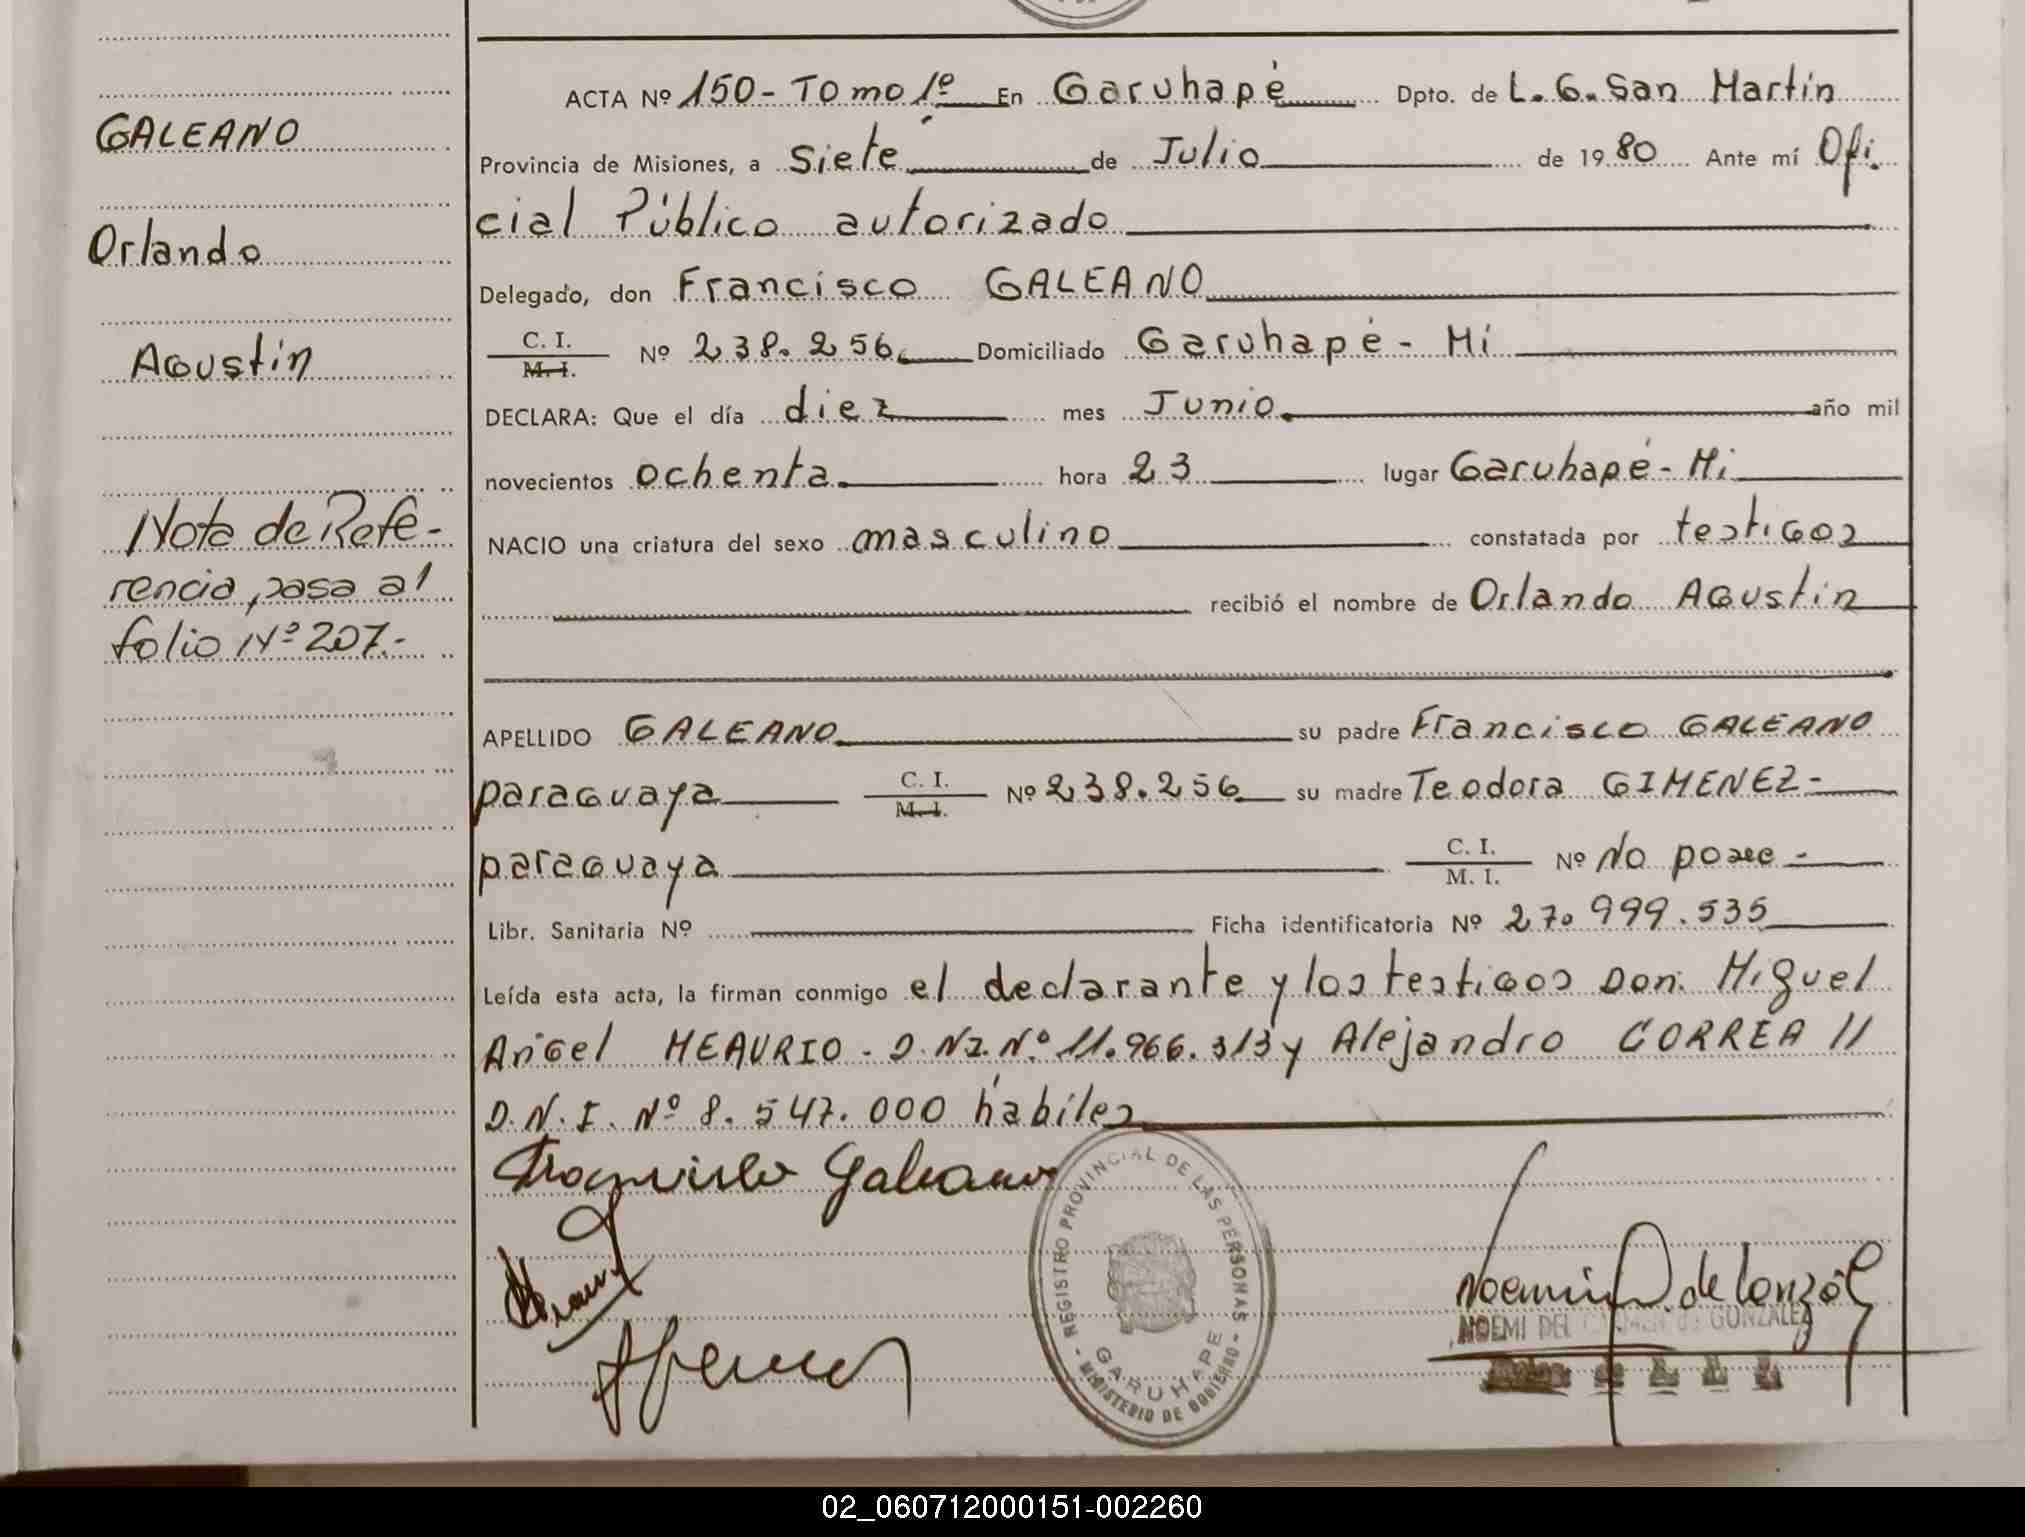 GALEANO
Orlando
Agustín
Nota de Refe-
rencia, pasa al
folio Nº 207.-
ACTA Nº 150- Tomo 1º En Garuhapé Dpto. de L. G. San Martín
Provincia de Misiones, a Siete de Julio de 1980 Ante mí Ofi.
cial Público autorizado
Delegado, don Francisco GALEANO
C. I.
M. I. Nº 238.256. Domiciliado Garuhapé - Mi
DECLARA: Que el día diez mes Junio. año mil
novecientos ochenta hora 23 lugar Garuhapé - Mi
NACIO una criatura del sexo masculino constatada por testigos
recibió el nombre de Orlando Agustín
APELLIDO GALEANO su padre Francisco GALEANO
paraguaya C. I.
M. I. Nº 238.256 su madre Teodora GIMENEZ-
paraguaya C. I.
M. I. Nº No posee -
Libr. Sanitaria Nº Ficha identificatoria Nº 27.999.535
Leída esta acta, la firman conmigo el declarante y los testigos Don. Miguel
Angel MEAURIO - D.NI.Nº 11.966.313 y Alejandro CORREA //
D.N.I. Nº 8.547.000 hábiles
Galeano
REGISTRO PROVINCIAL DE LAS PERSONAS - MINISTERIO DE GOBIERNO -
GARUHAPE
Noemí D. de Gonzál
NOEMI DEL CARMEN de GONZALEZ
02_060712000151-002260